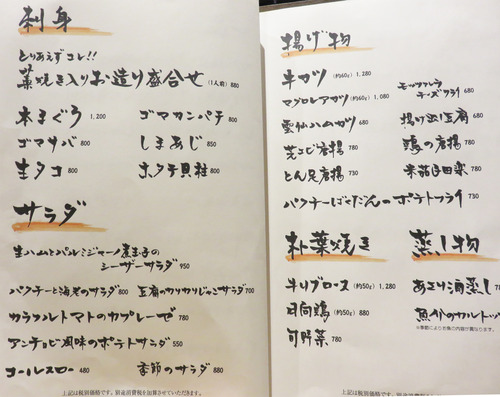 刺身
とりあえずコレ!!
藁焼き入りお造り盛合せ (1人前) 880
本まぐろ 1,200
ゴマカンパチ 800
ゴマサバ 800
しまあじ 850
生タコ 800
ホタテ貝柱 800
サラダ
生ハムとパルミジャーノ 温玉子の
シーザーサラダ 950
パクチーと海老のサラダ 800
豆腐のカリカリじゃこサラダ 700
カラフルトマトのカプレーゼ 780
アンチョビ風味のポテトサラダ 550
コールスロー 480
季節のサラダ 880
上記は税別価格です。別途消費税を加算させていただきます。
揚げ物
牛カツ (約60g) 1,280
モッツァレラ
チーズフライ 680
マグロレアカツ (約60g) 1,080
雲仙ハムカツ 680
揚げ出し豆腐 680
芝エビ唐揚 780
鶏の唐揚 780
とん足唐揚 730
米茄子田楽 780
パクチーばくだんのポテトフライ 780
朴葉焼き
牛リブロース (約50g) 1,280
日向鶏 (約50g) 880
旬野菜 780
蒸し物
あさり酒蒸し 78
魚介のカルトッ
※季節により魚介の内容が異なります。
上記は税別価格です。別途消費税